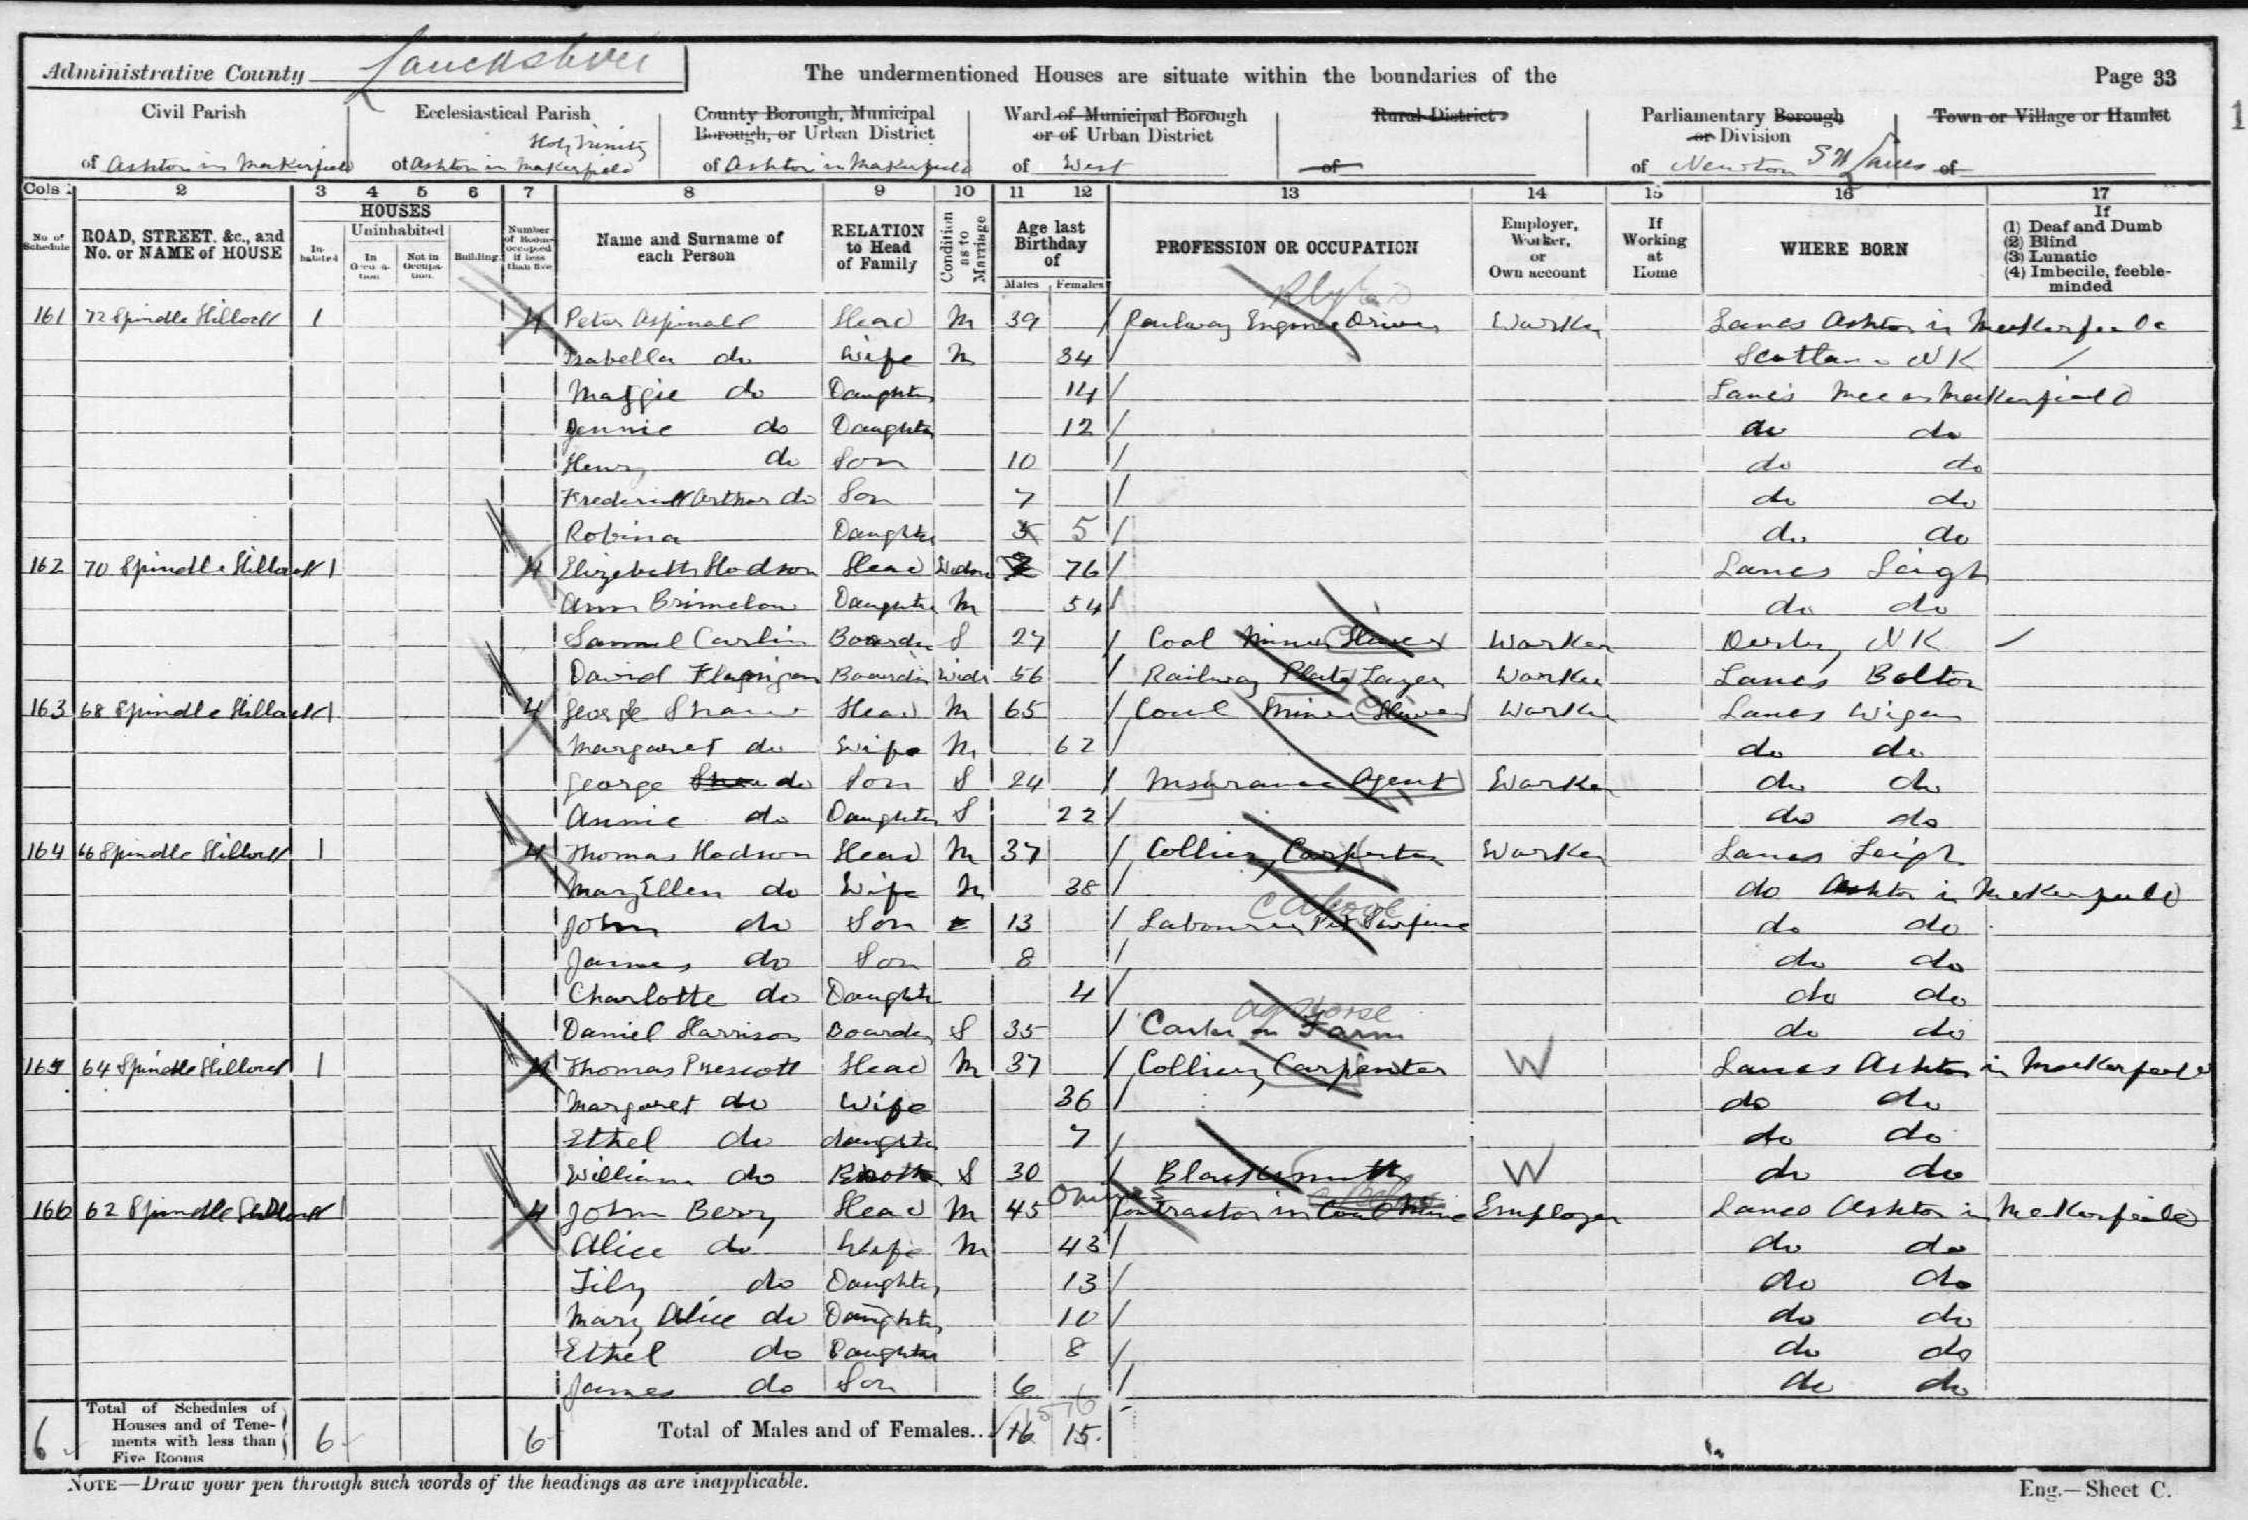 Administrative County Lancashire
The undermentioned Houses are situate within the boundaries of the
Page 33
Civil Parish of Ashton in Makerfield
Ecclesiastical Parish Holy Trinity of Ashton in Makerfield
County Borough, Municipal Borough, or Urban District of Ashton in Makerfield
Ward of Municipal Borough or of Urban District of West
Rural District of
Parliamentary Borough or Division of Newton S W Lancs
Town or Village or Hamlet of
1
Cols. 2 3 4 5 6 7 8 9 10 11 12 13 14 15 16 17
No. of Schedule
ROAD, STREET, &c., and No. or NAME of HOUSE
HOUSES
Inhabited
Uninhabited
In Occupation
Not in Occupation
Building
Number of Rooms occupied if less than five
Name and Surname of each Person
RELATION to Head of Family
Condition as to Marriage
Age last Birthday of
Males Females
PROFESSION OR OCCUPATION
Employer, Worker, or Own account
If Working at Home
WHERE BORN
If
(1) Deaf and Dumb
(2) Blind
(3) Lunatic
(4) Imbecile, feeble-minded
161 72 Spindle Hillock 1 4 Peter Aspinall Head M 39 Railway Engine Driver Worker Lancs Ashton in Makerfield
Isabella do Wife M 34 Scotland NK
Maggie do Daughter 14 Lancs Ince in Makerfield
Jennie do Daughter 12 do do
Henry do Son 10 do do
Frederick Arthur do Son 7 do do
Robina Daughter 5 5 do do
162 70 Spindle Hillock 1 4 Elizabeth Hodson Head Widow 76 Lancs Leigh
Ann Brimelow Daughter M 54 do do
Samuel Carlin Boarder S 27 Coal Miner Hewer Worker Derby NK
David Flannigan Boarder Widr 56 Railway Plate Layer Worker Lancs Bolton
163 68 Spindle Hillock 1 4 George Shaw Head M 65 Coal Miner Hewer Worker Lancs Wigan
Margaret do Wife M 62 do do
George Shaw do Son S 24 Insurance Agent Worker do do
Annie do Daughter S 22 do do
164 66 Spindle Hillock 1 4 Thomas Hodson Head M 37 Colliery Carpenter Worker Lancs Leigh
Mary Ellen do Wife M 38 do Ashton in Makerfield
John do Son 13 Labourer Pit Surface do do
James do Son 8 do do
Charlotte do Daughter 4 do do
Daniel Harrison Boarder S 35 Carter on Farm do do
165 64 Spindle Hillock 1 4 Thomas Prescott Head M 37 Colliery Carpenter W Lancs Ashton in Makerfield
Margaret do Wife 36 do do
Ethel do daughter 7 do do
William do Brother S 30 Blacksmith W do do
166 62 Spindle Hillock 1 4 John Berry Head M 45 Contractor in Coal Mine Employer Lancs Ashton in Makerfield
Alice do Wife M 43 do do
Lily do Daughter 13 do do
Mary Alice do Daughter 10 do do
Ethel do Daughter 8 do do
James do Son 6 do do
6 Total of Schedules of Houses and of Tenements with less than Five Rooms 6 6 Total of Males and of Females.. 16 15
NOTE—Draw your pen through such words of the headings as are inapplicable.
Eng.—Sheet C.